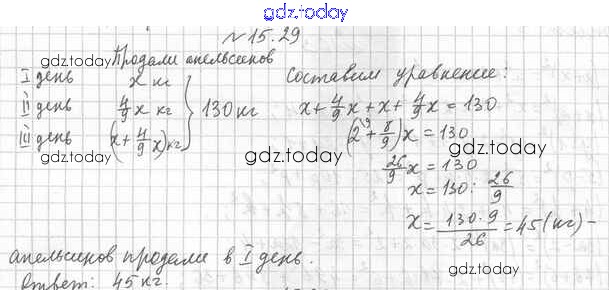 gdz.today
№15.29
gdz.today
Продали апельсинов
I день x кг
II день 4/9x кг } 130 кг
III день (x+4/9x) кг
gdz.today
Составим уравнение:
x+4/9x+x+4/9x=130
(2\9+8/9)x=130
gdz.today
gdz.today
26/9x=130
x=130:26/9
x=130·9/26=45(кг)–
апельсинов продали в I день.
gdz.today
Ответ: 45 кг.